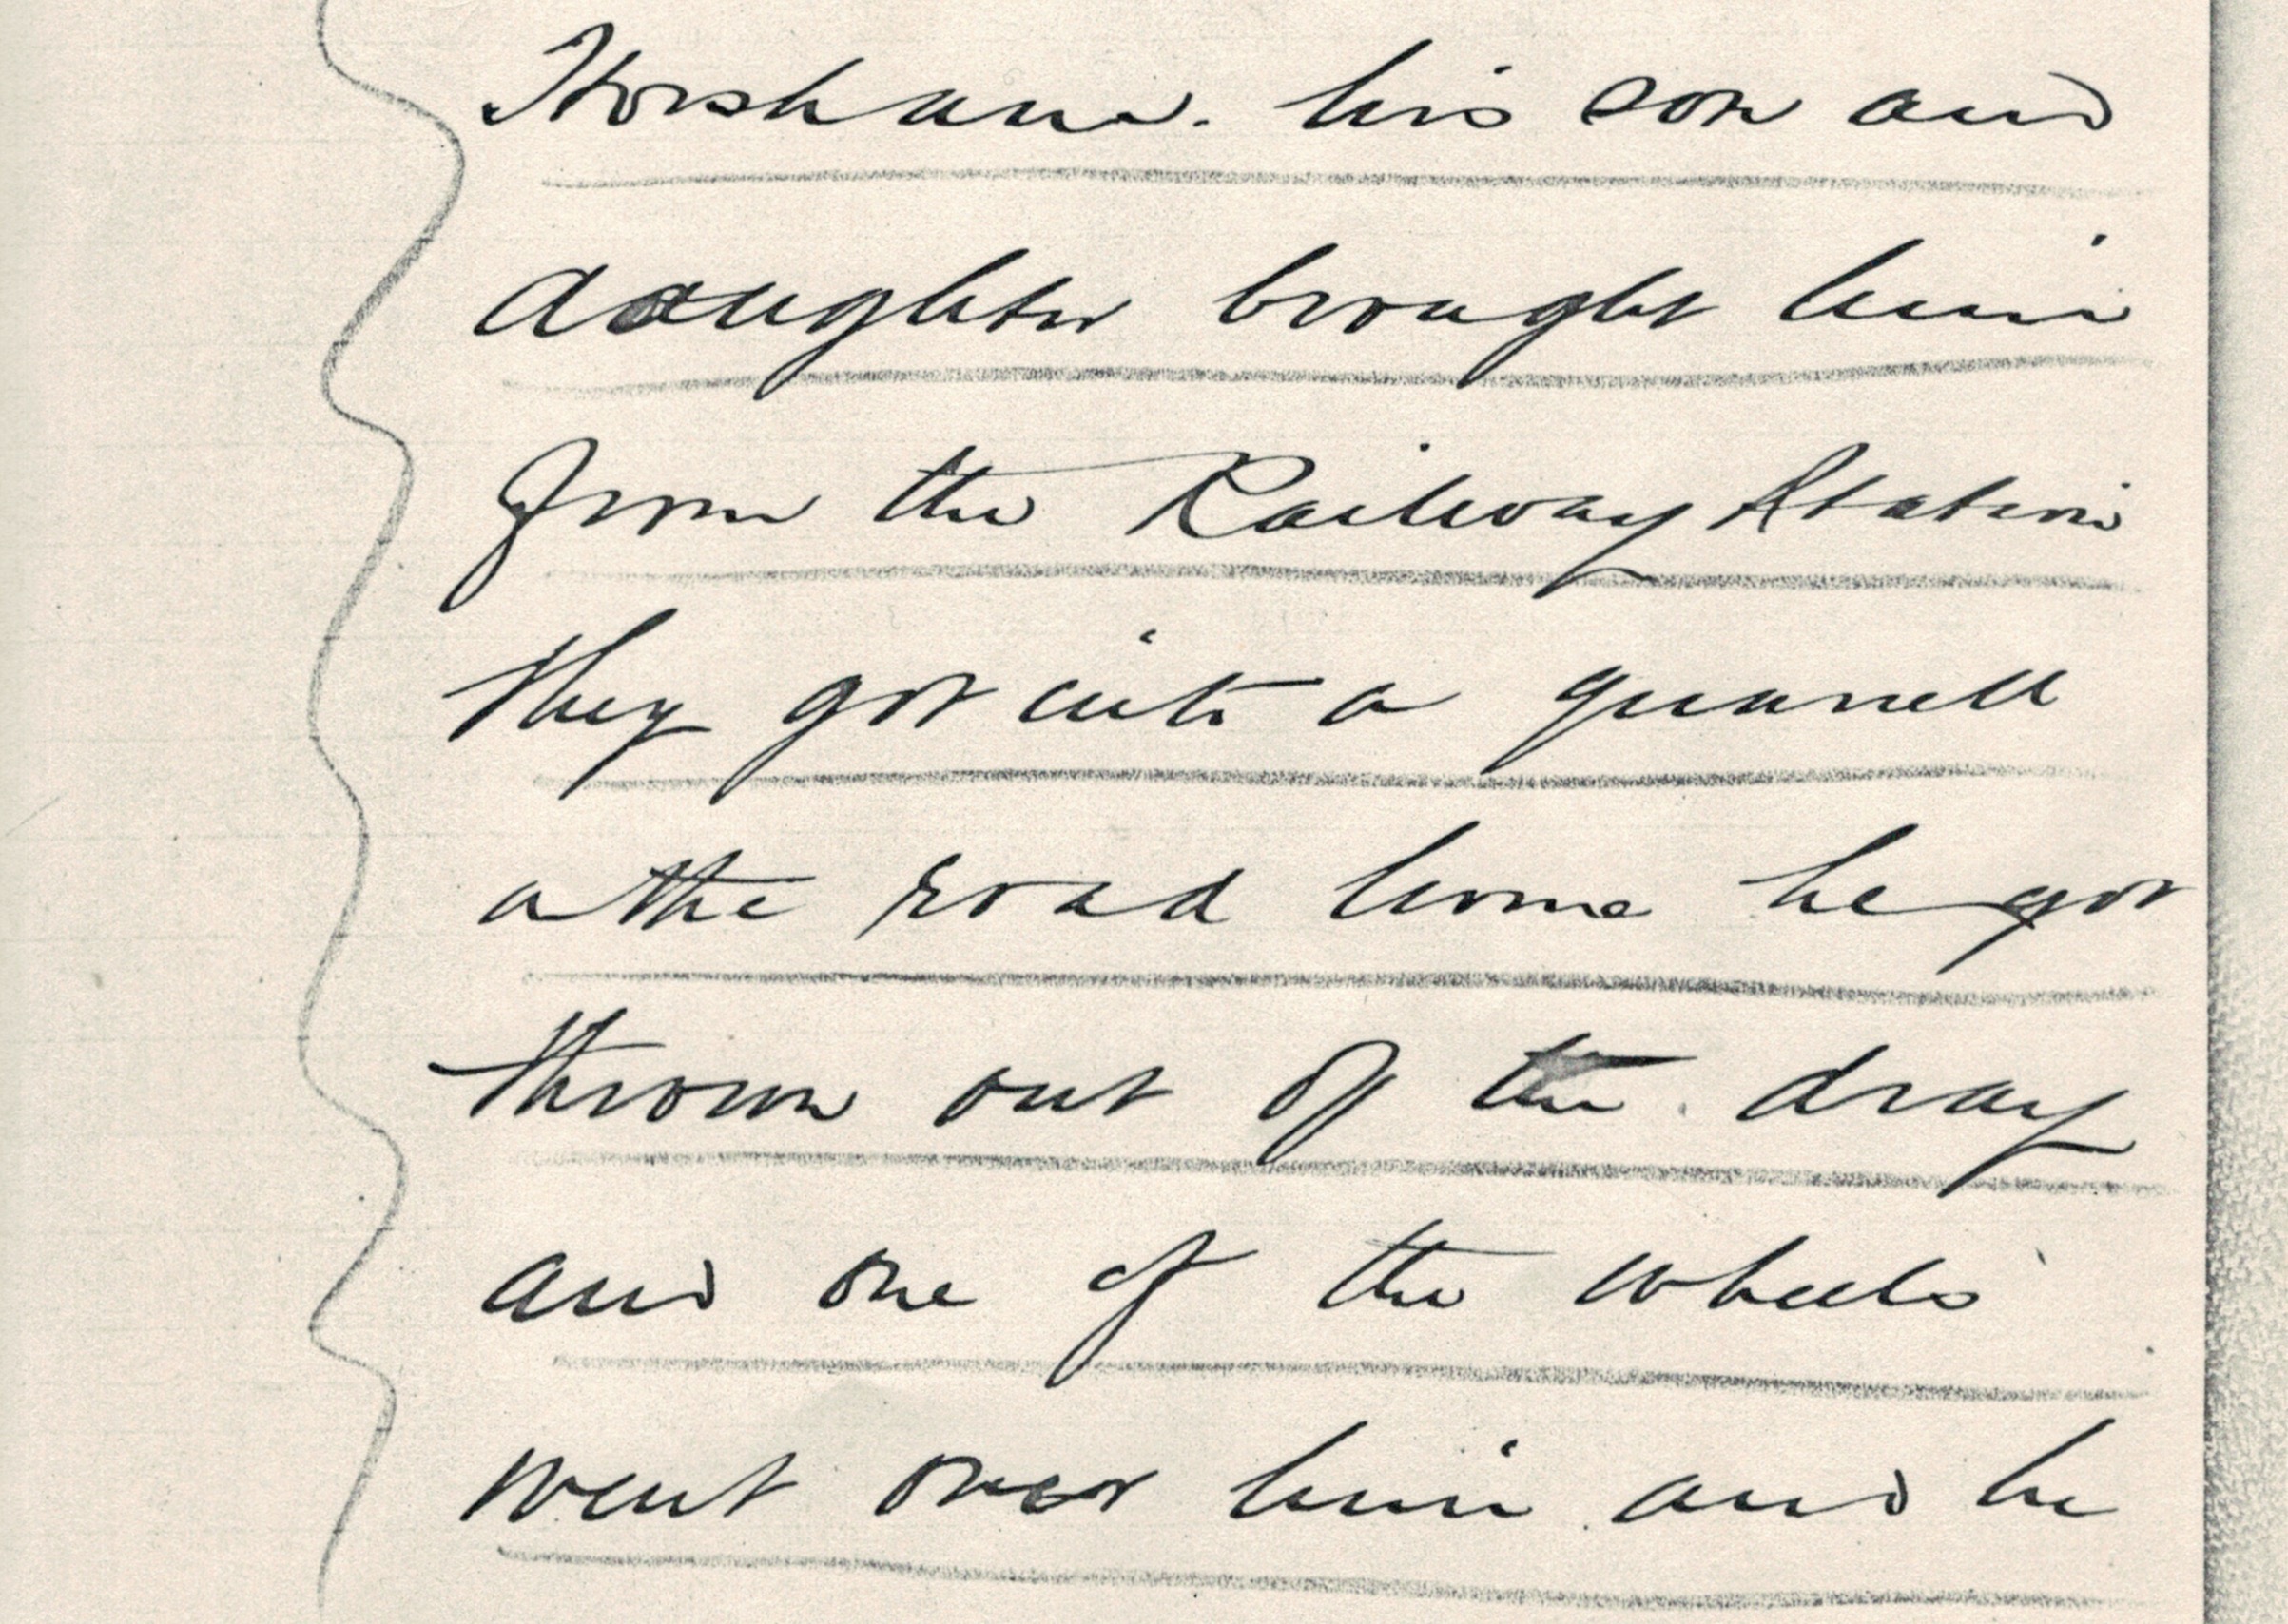 Horsham. his son and
daughter brought him
from the Railway Station
they got into a quarrell
a the road home he got
thrown out of the dray
and one of the wheels
went over him and he